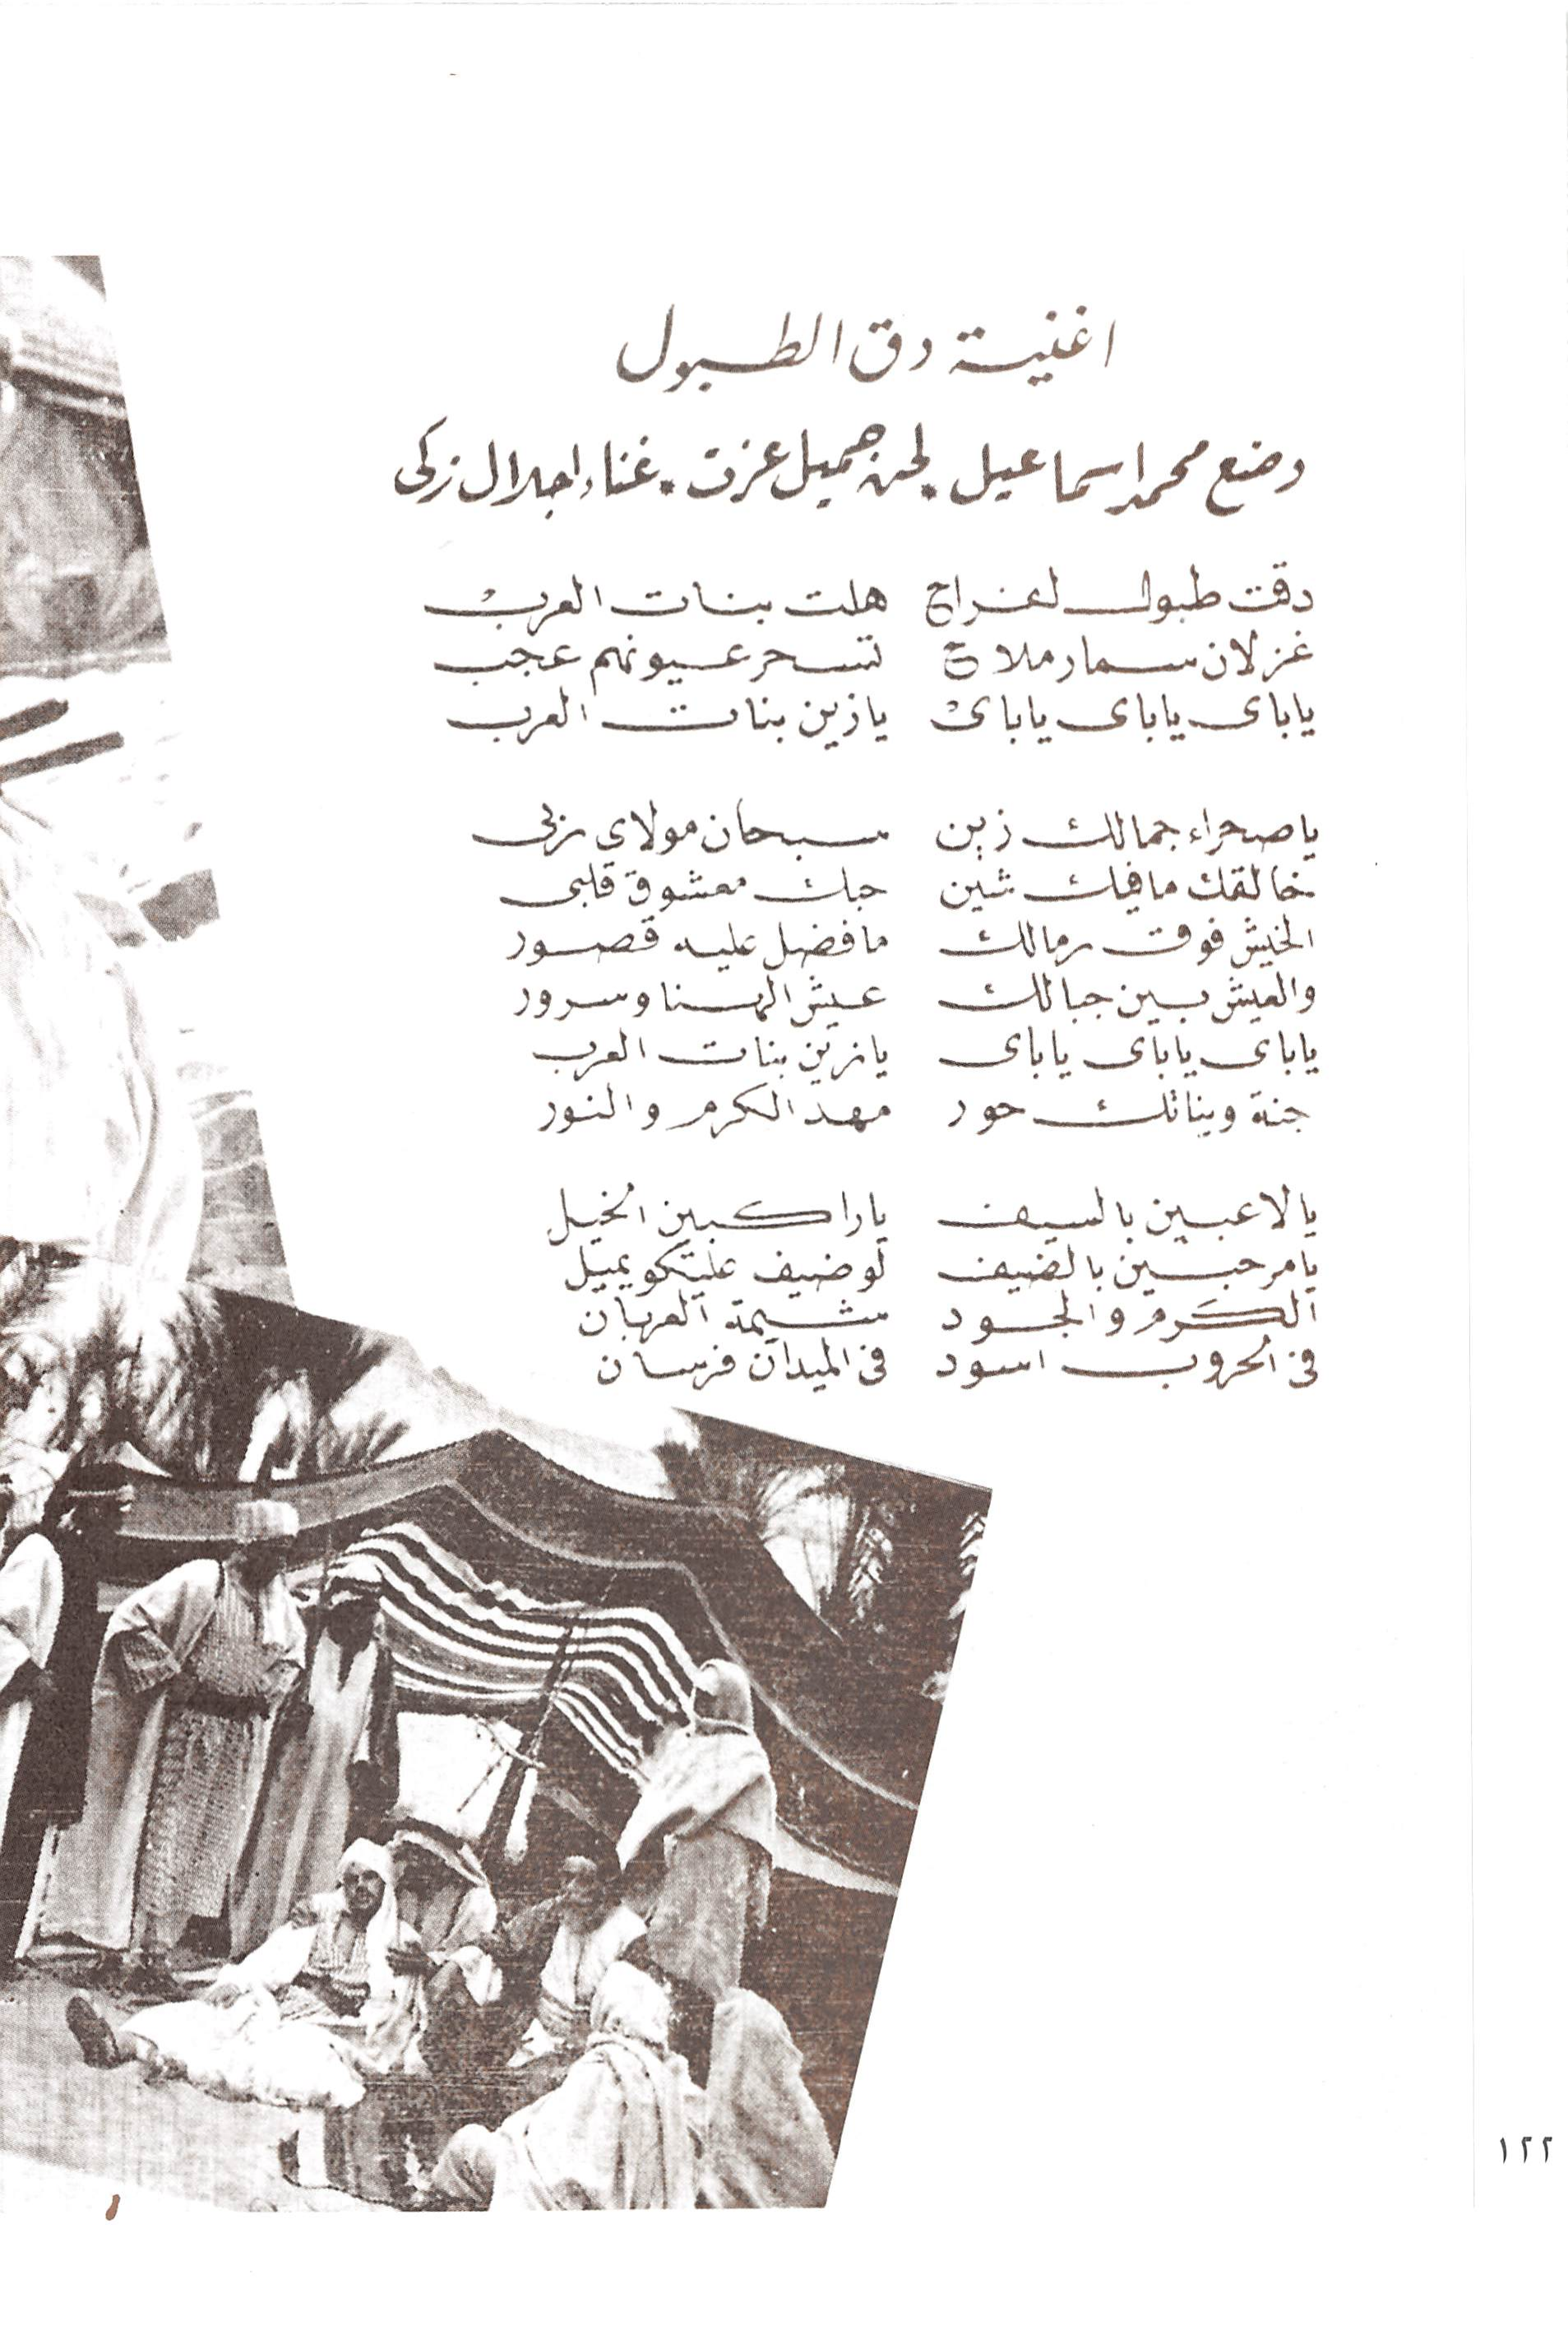 اغنية دق الطبول
وضع محمد اسماعيل . لحن جميل عزت . غناء اجلال زكى
دقت طبول لفراح هلت بنات العرب
غزلان سمار ملاح تسحر عيونهم عجب
ياباى ياباى ياباى يازين بنات العرب
ياصحراء جمالك زين سبحان مولاى ربى
خالقك مافيك شين حبك معشوق قلبى
الخيش فوق رمالك مافضل عليه قصور
والعيش بين جبالك عيش الهنا وسرور
ياباى ياباى ياباى يازين بنات العرب
جنة وبناتك حور مهد الكرم والنور
يالاعبين بالسيف ياراكبين الخيل
يامرحبين بالضيف لوضيف عليكو يميل
الكرم والجود شيمة العربان
فى الحروب اسود فى الميدان فرسان
١٢٢